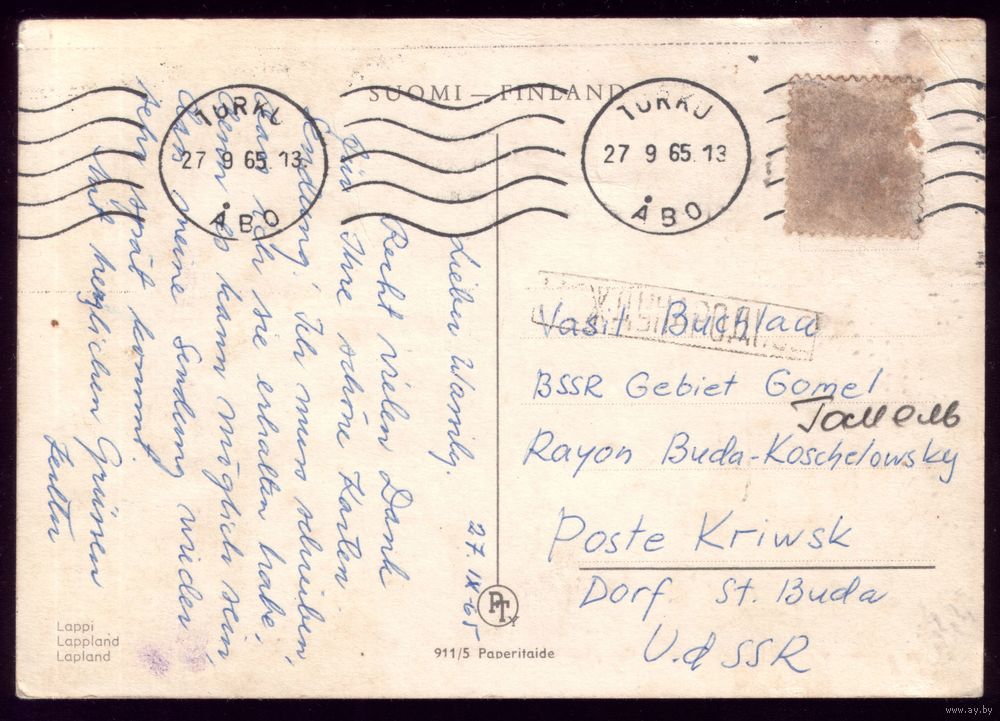 SUOMI — FINLAND
TURKU
27 9 65.13
ÅBO
TURKU
27 9 65.13
ÅBO
27. IX 65
Lieber
Recht vielen Dank
für Ihre schöne Karten.
Sendung. Ich muss schreiben,
dass ich sie erhalten habe,
denn es kann möglich sein
dass meine Sendung wieder
sehr spät kommt.
Mit herzlichen Grüssen
Vasil
BSSR Gebiet Gomel
Гомель
Rayon Buda-Koschelowsky
Poste Kriwsk
Dorf St. Buda
U.d SSR
Lappi
Lappland
Lapland
PT
911/5 Paperitaide
www.ay.by